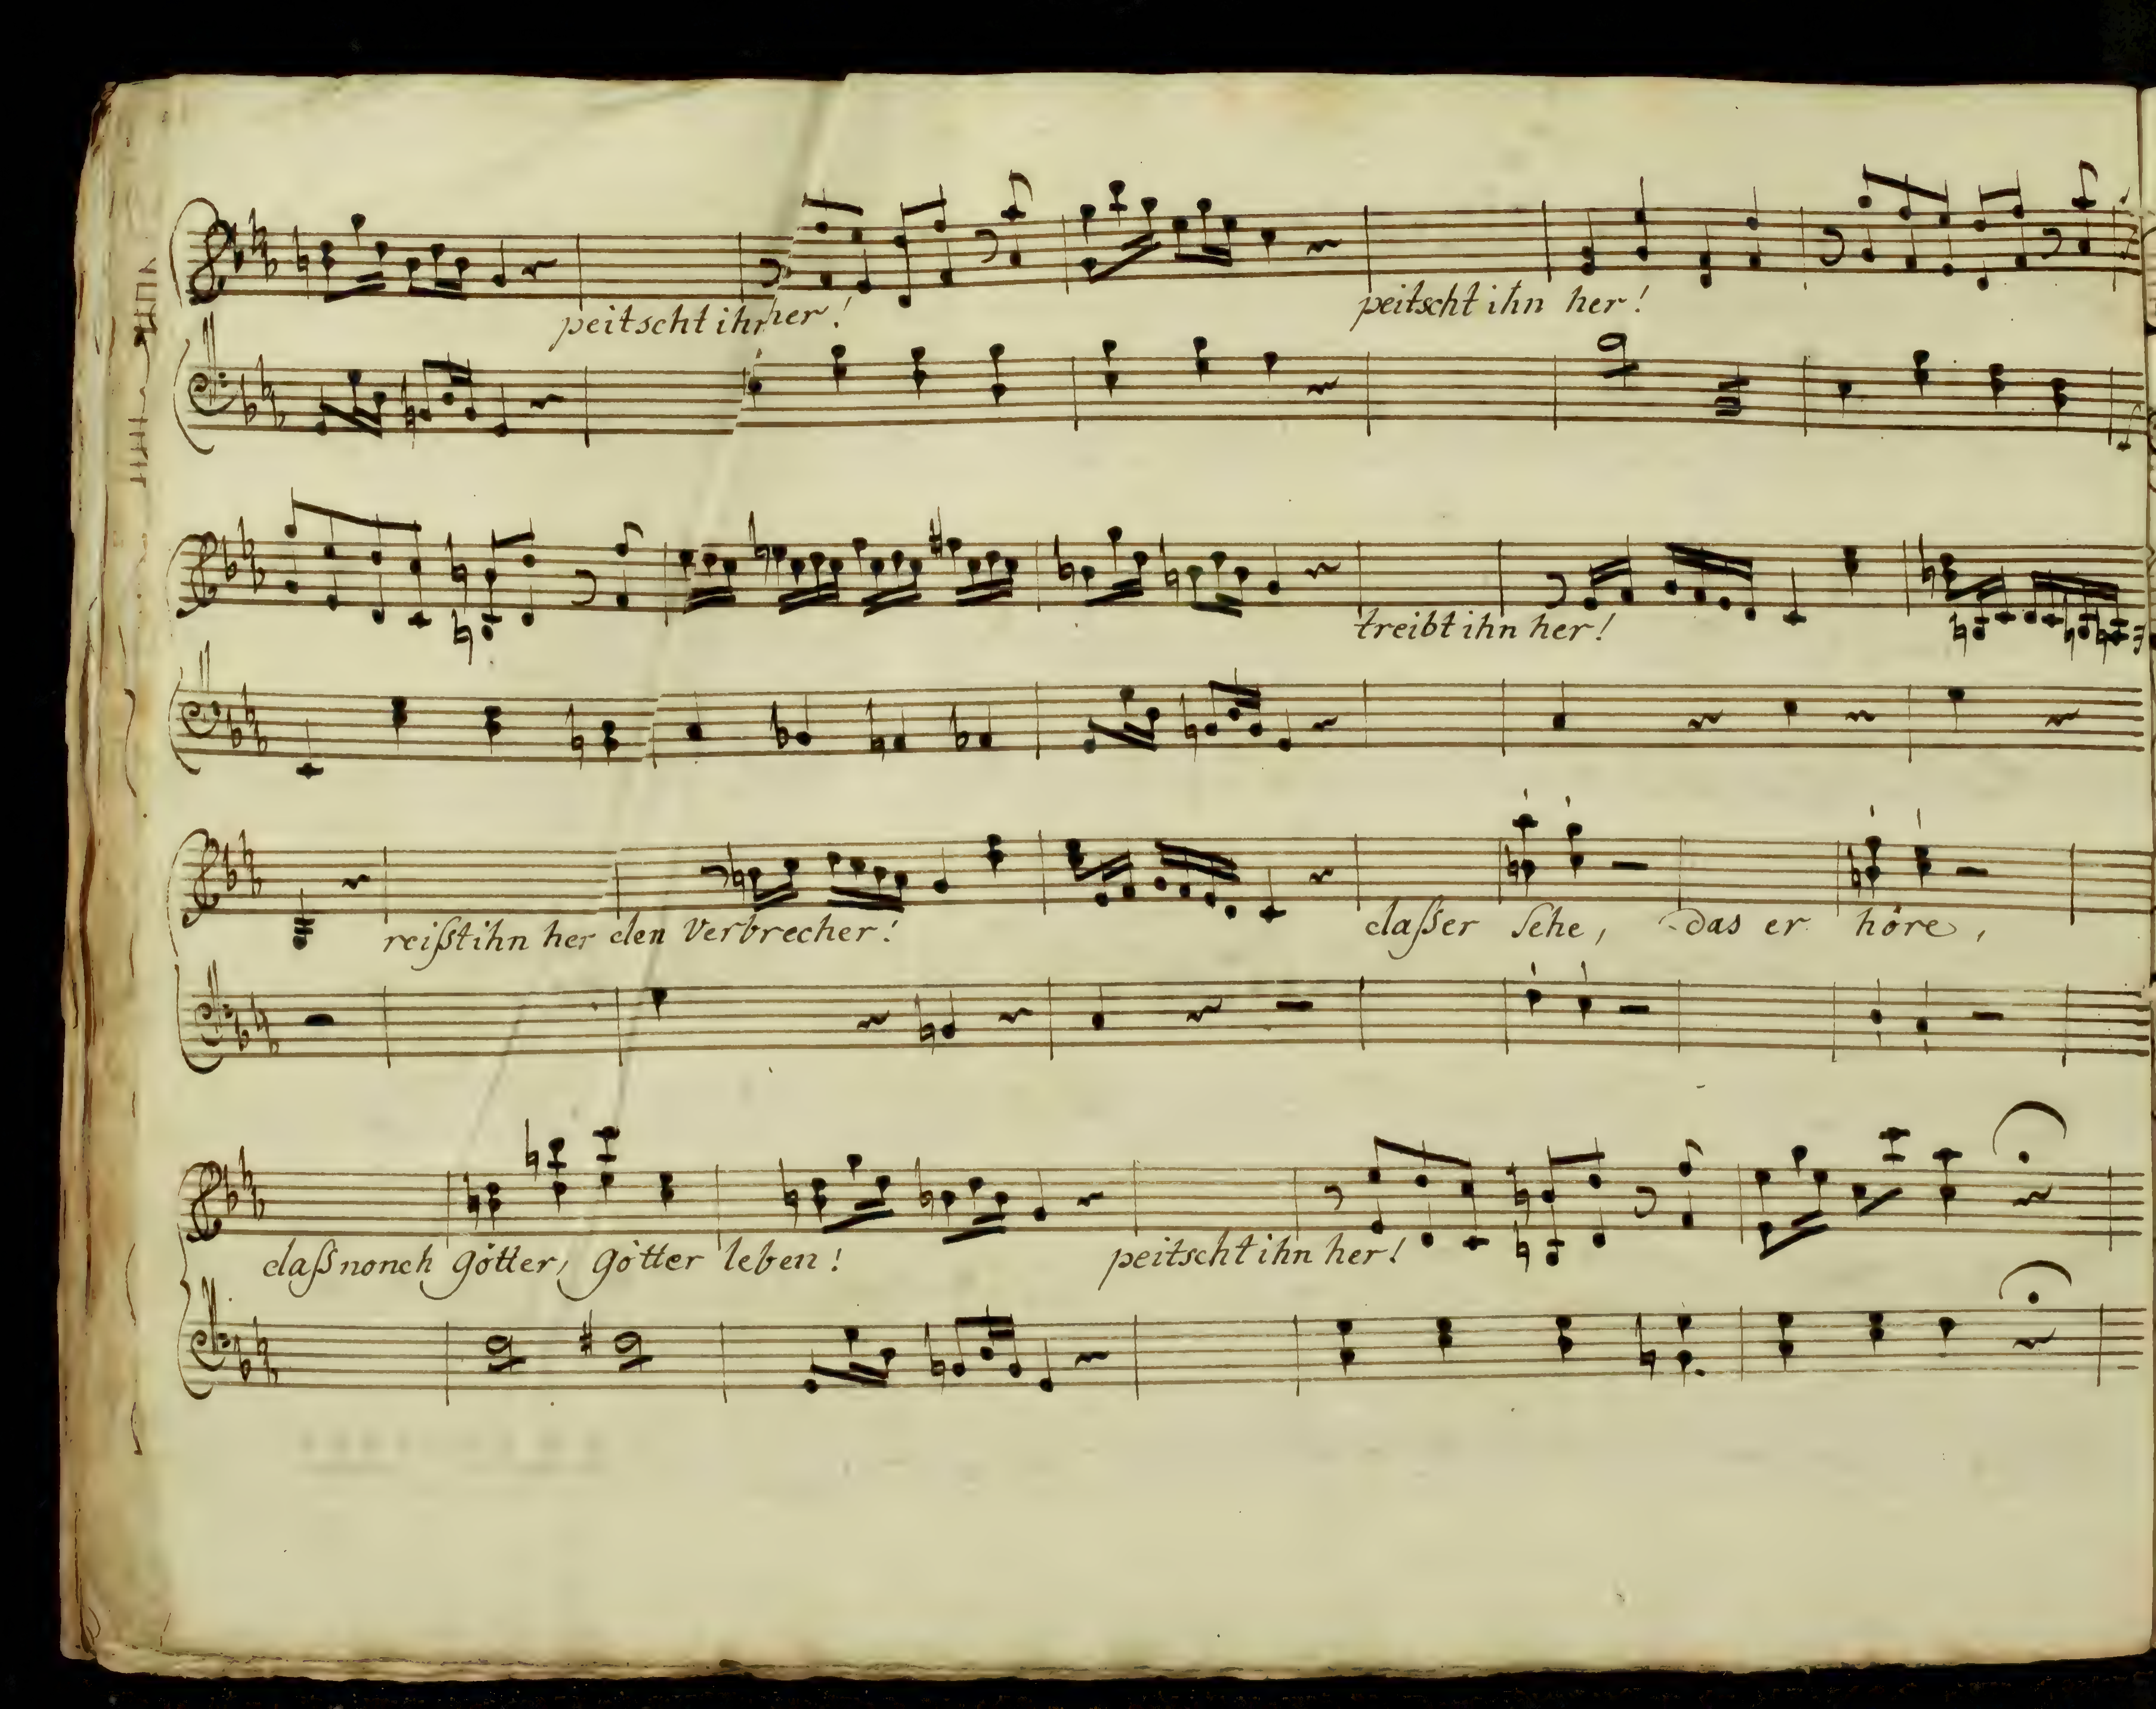 peitscht ihn her! peitscht ihn her!
treibt ihn her!
reißt ihn her den Verbrecher! daßer Sehe, das er höre,
daß nonch götter, götter leben! peitscht ihn her!